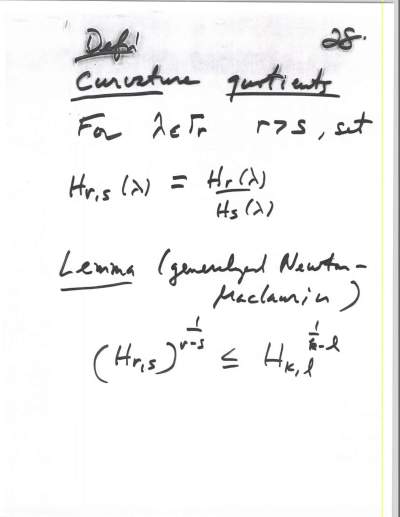 Defn 28.
Curvature quotients
For λ ∈ Γr r > s, set
H_{r,s}(λ) = H_r(λ) / H_s(λ)
Lemma (generalized Newton-
Maclaurin)
(H_{r,s})^{1/(r-s)} ≤ H_{k,l}^{1/(k-l)}